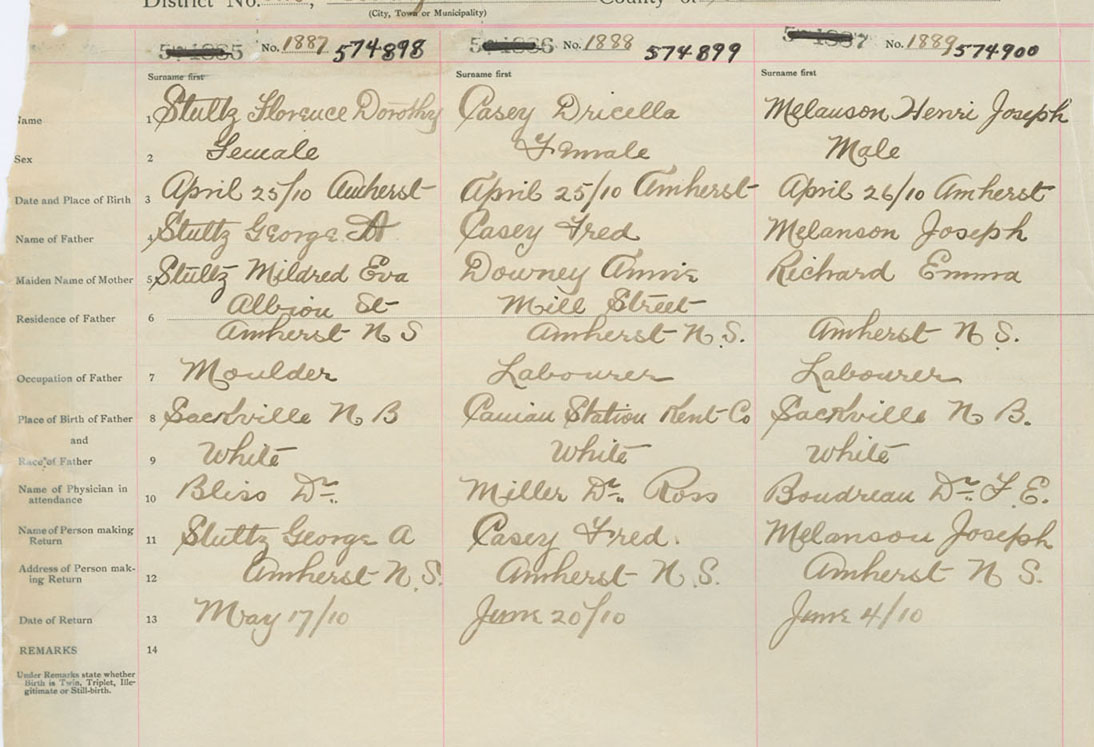 District No. County of
(City, Town or Municipality)
No. 1887 574898 No. 1888 574899 No. 1889 574900
Surname first Surname first Surname first
Name 1 Stultz Florence Dorothy Casey Dricella Melanson Henri Joseph
Sex 2 Female Female Male
Date and Place of Birth 3 April 25/10 Amherst April 25/10 Amherst April 26/10 Amherst
Name of Father 4 Stultz George A Casey Fred Melanson Joseph
Maiden Name of Mother 5 Stultz Mildred Eva Downey Annie Richard Emma
Albion St Mill Street
Residence of Father 6 Amherst N S Amherst N.S. Amherst N S.
Occupation of Father 7 Moulder Labourer Labourer
Place of Birth of Father 8 Sackville N B Station Kent Co Sackville N B.
and
Race of Father 9 White White White
Name of Physician in attendance 10 Bliss Dr. Miller Dr. Ross Boudreau Dr. F. E.
Name of Person making Return 11 Stultz George A Casey Fred. Melanson Joseph
Address of Person making Return 12 Amherst N.S. Amherst N.S. Amherst N S.
Date of Return 13 May 17/10 June 20/10 June 4/10
REMARKS 14
Under Remarks state whether
Birth is Twin, Triplet, Ille-
gitimate or Still-birth.